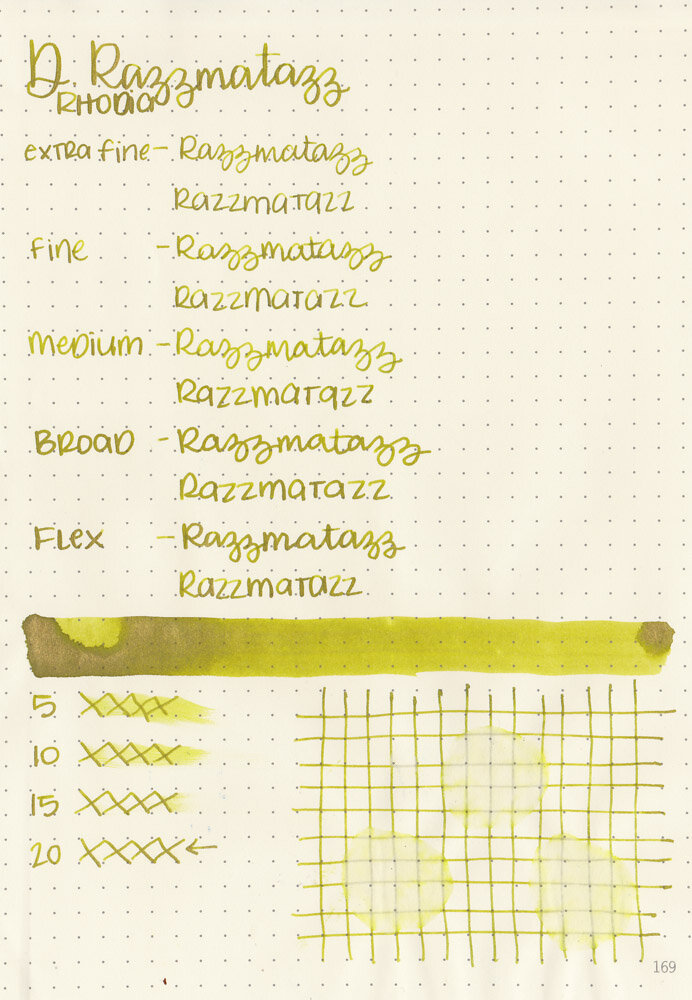 D. Razzmatazz
RHODIA
extra fine - Razzmatazz
Razzmatazz
fine - Razzmatazz
Razzmatazz
medium - Razzmatazz
Razzmatazz
BROAD - Razzmatazz
Razzmatazz
Flex - Razzmatazz
Razzmatazz
5 XXXX
10 XXXX
15 XXXX
20 XXXX←
169